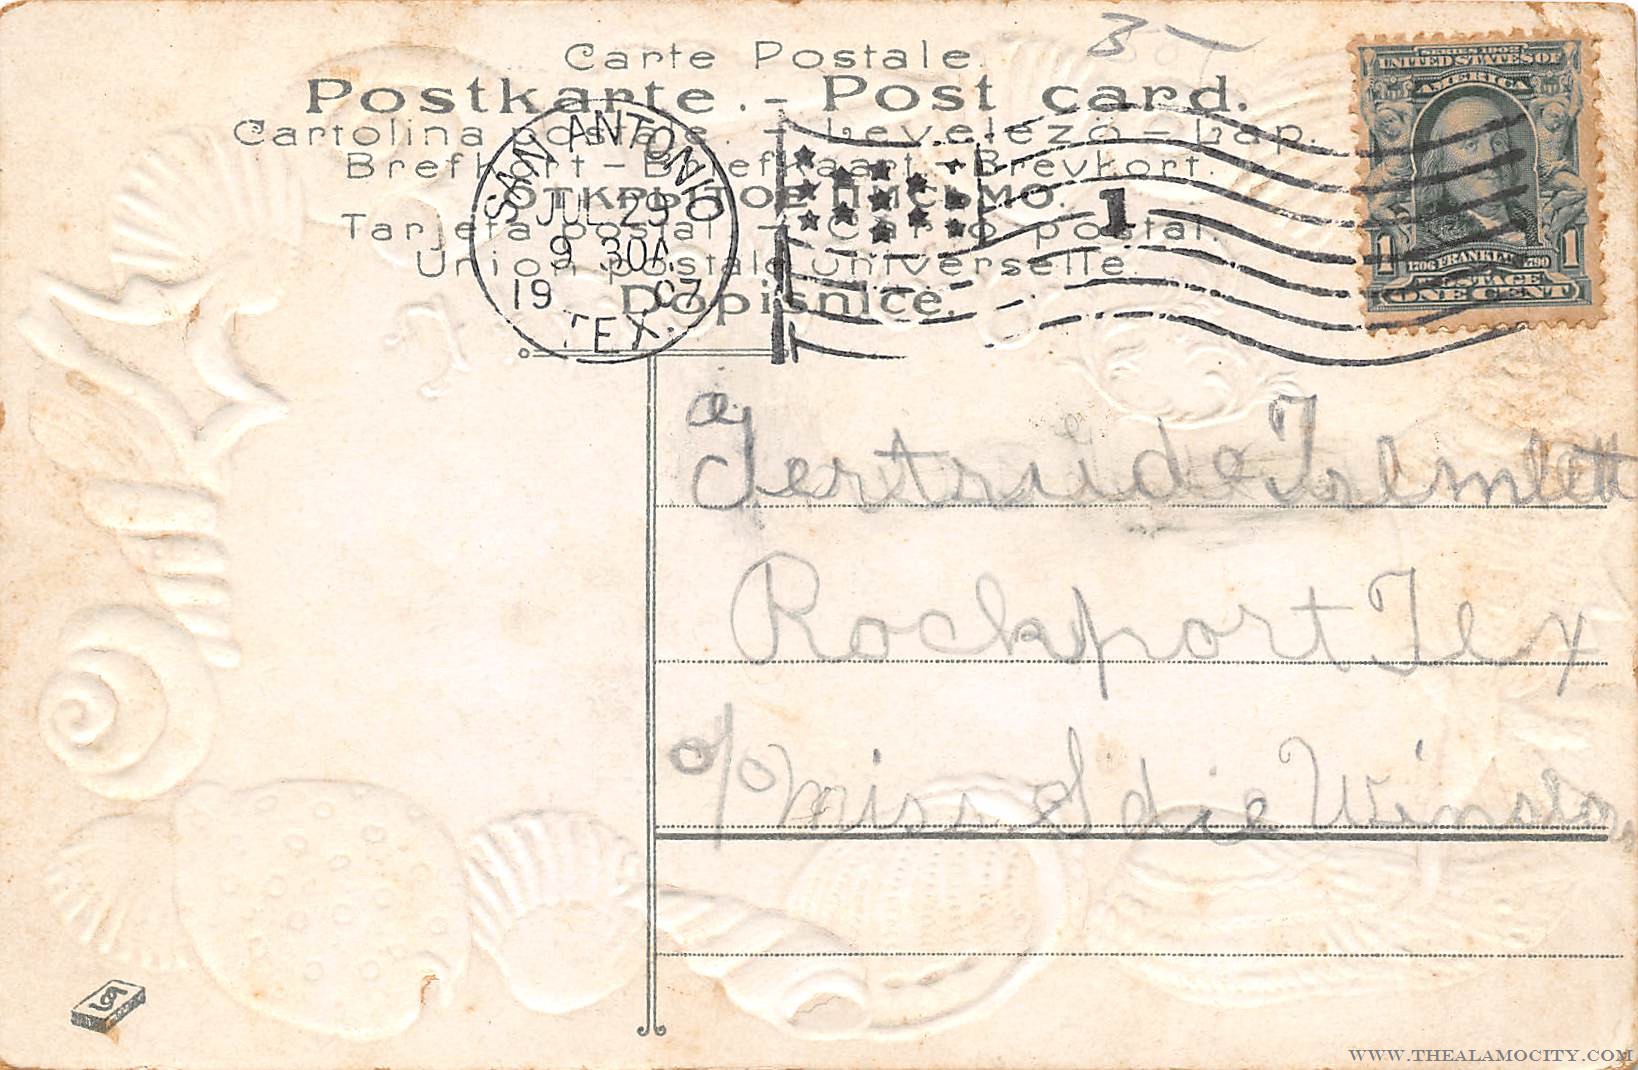 Carte Postale.
Postkarte. - Post card.
Cartolina postale. - Levelező-Lap.
Brefkort - Briefkaart - Brevkort.
ОТКРЫТОЕ ПИСЬМО.
Tarjeta postal - Carto postal.
Union postale universelle.
Dopisnice.
SAN ANTONIO
JUL 25
9 30A
19 07
TEX.
1
SERIES 1902
UNITED STATES OF
AMERICA
1 1706 FRANKLIN 1790 1
POSTAGE
ONE CENT
Gertrude Tremlett
Rockport Tex
c/o Miss Edie
WWW.THEALAMOCITY.COM